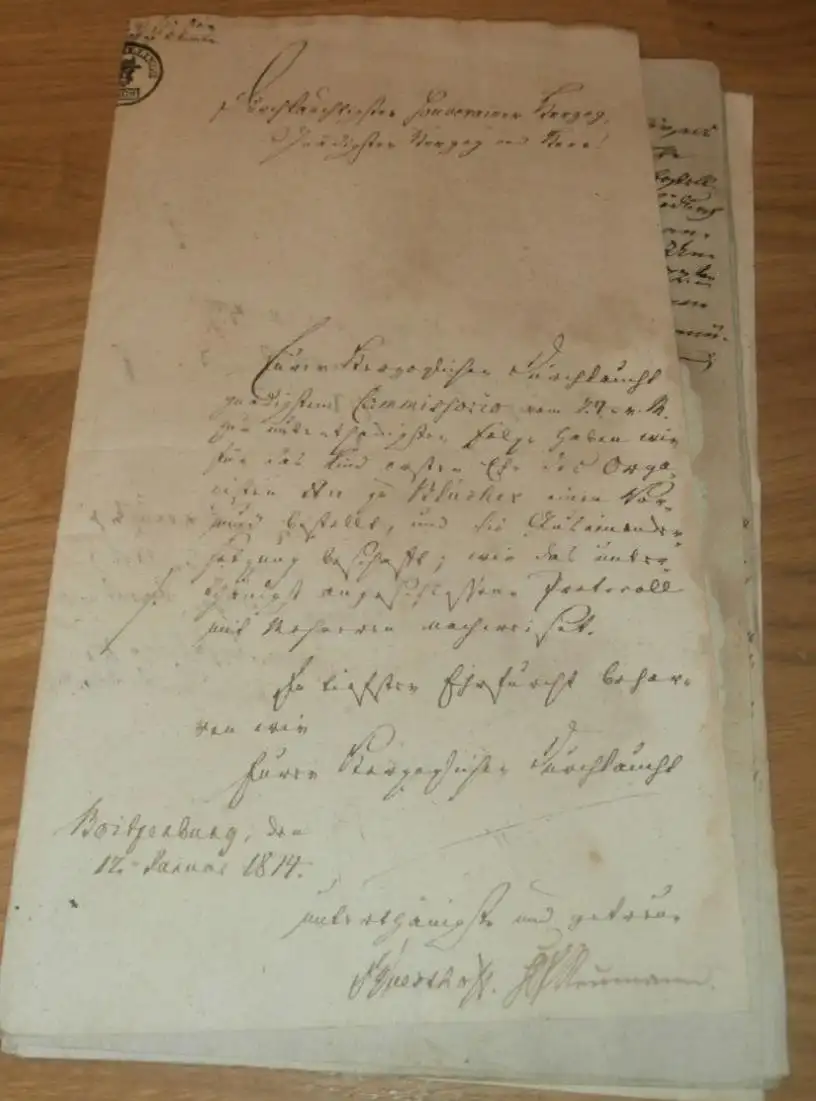 Durchlauchtigster Souverainer Herzog,
Gnädigster Herzog und Herr!
Eurer Herzoglichen Durchlaucht
gnädigstem Commissorio vom
zur unterthänigsten Folge haben wir
für das Kind erster Ehe des Orga-
nisten zu Blücher einen Vor-
mund bestellt, und die Auseinander-
setzung beschafft; wie das unter-
thänigst angeschlossene Protocoll
mit Mehrerem nachweiset.
In tiefster Ehrfurcht behar-
ren wir
Eurer Herzoglichen Durchlaucht
Boitzenburg, den
12. Januar 1814.
unterthänigst und getreue
Neumann.